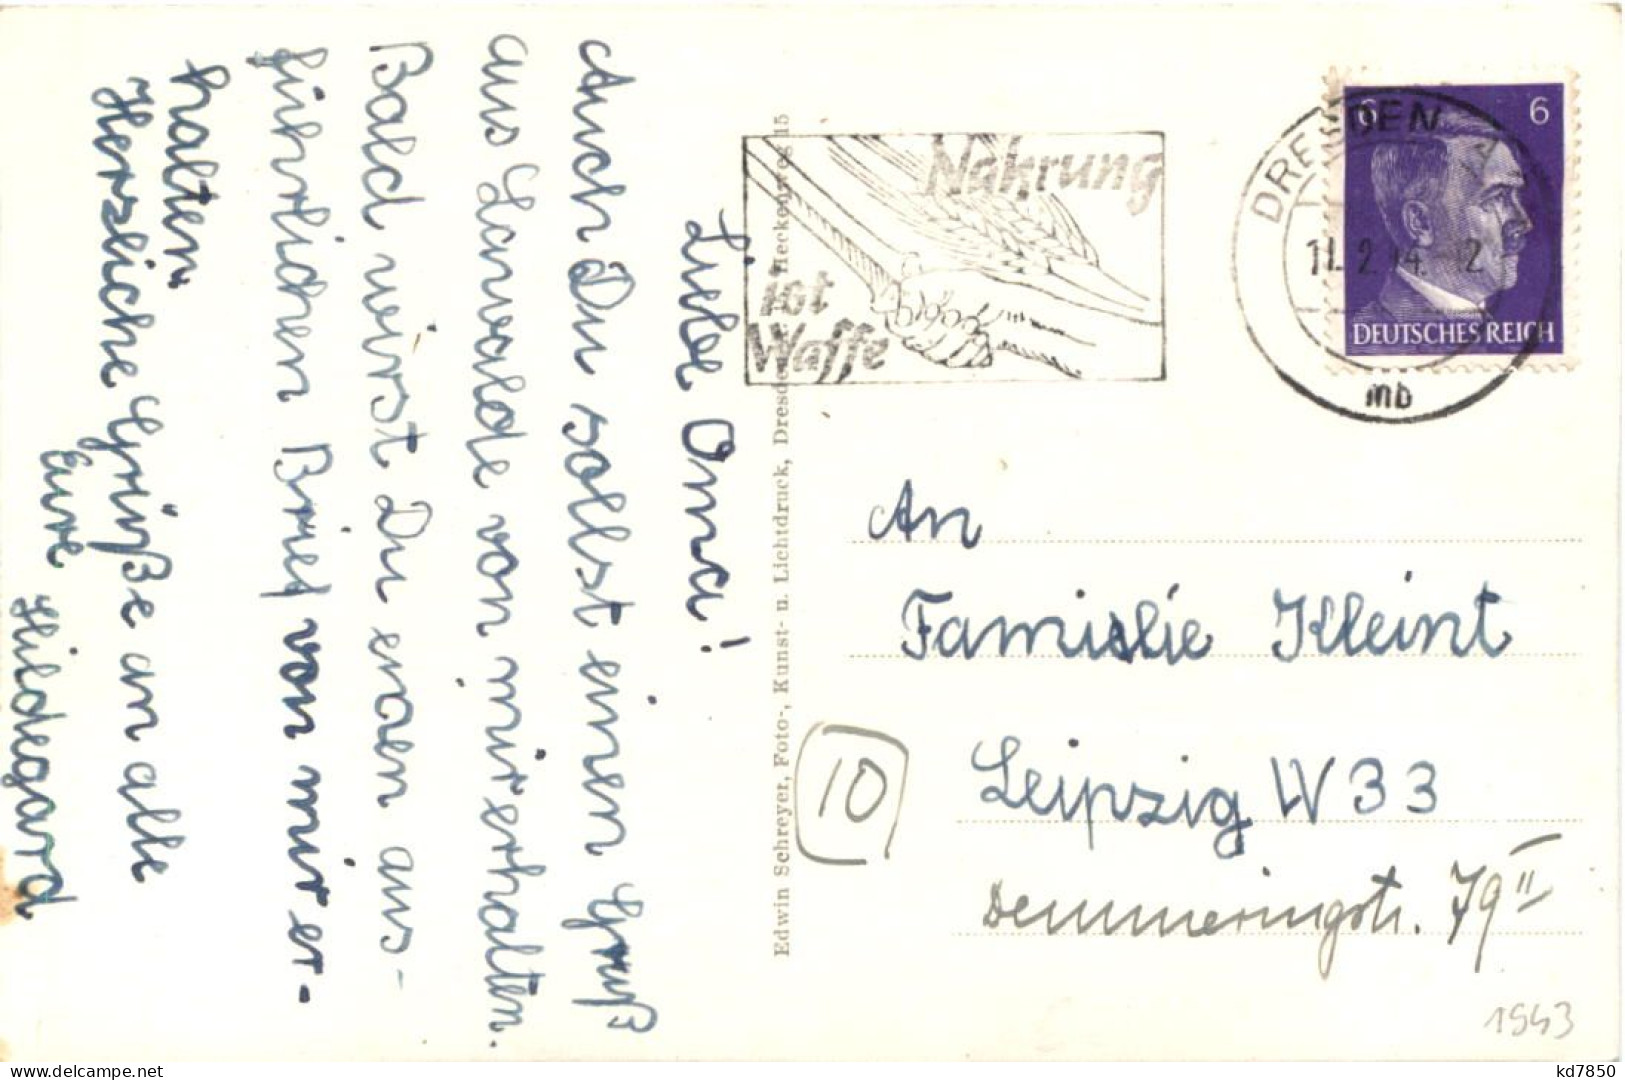 Liebe Oma!
Auch Du sollst einen Gruß
aus Lanwalde von mir erhalten.
Bald wirst Du einen aus-
führlichen Brief von mir er-
halten.
Herzliche Grüße an alle
Eure
Hildegard
Edwin Schreyer, Foto-, Kunst- u. Lichtdruck, Dresden Heckenweg 15
Nahrung
ist
Waffe
DRESDEN A
11.2.4 12
mb
6 6
DEUTSCHES REICH
An
Familie Kleint
10
Leipzig W 33
Demmeringstr. 79 II
1943
kd7850